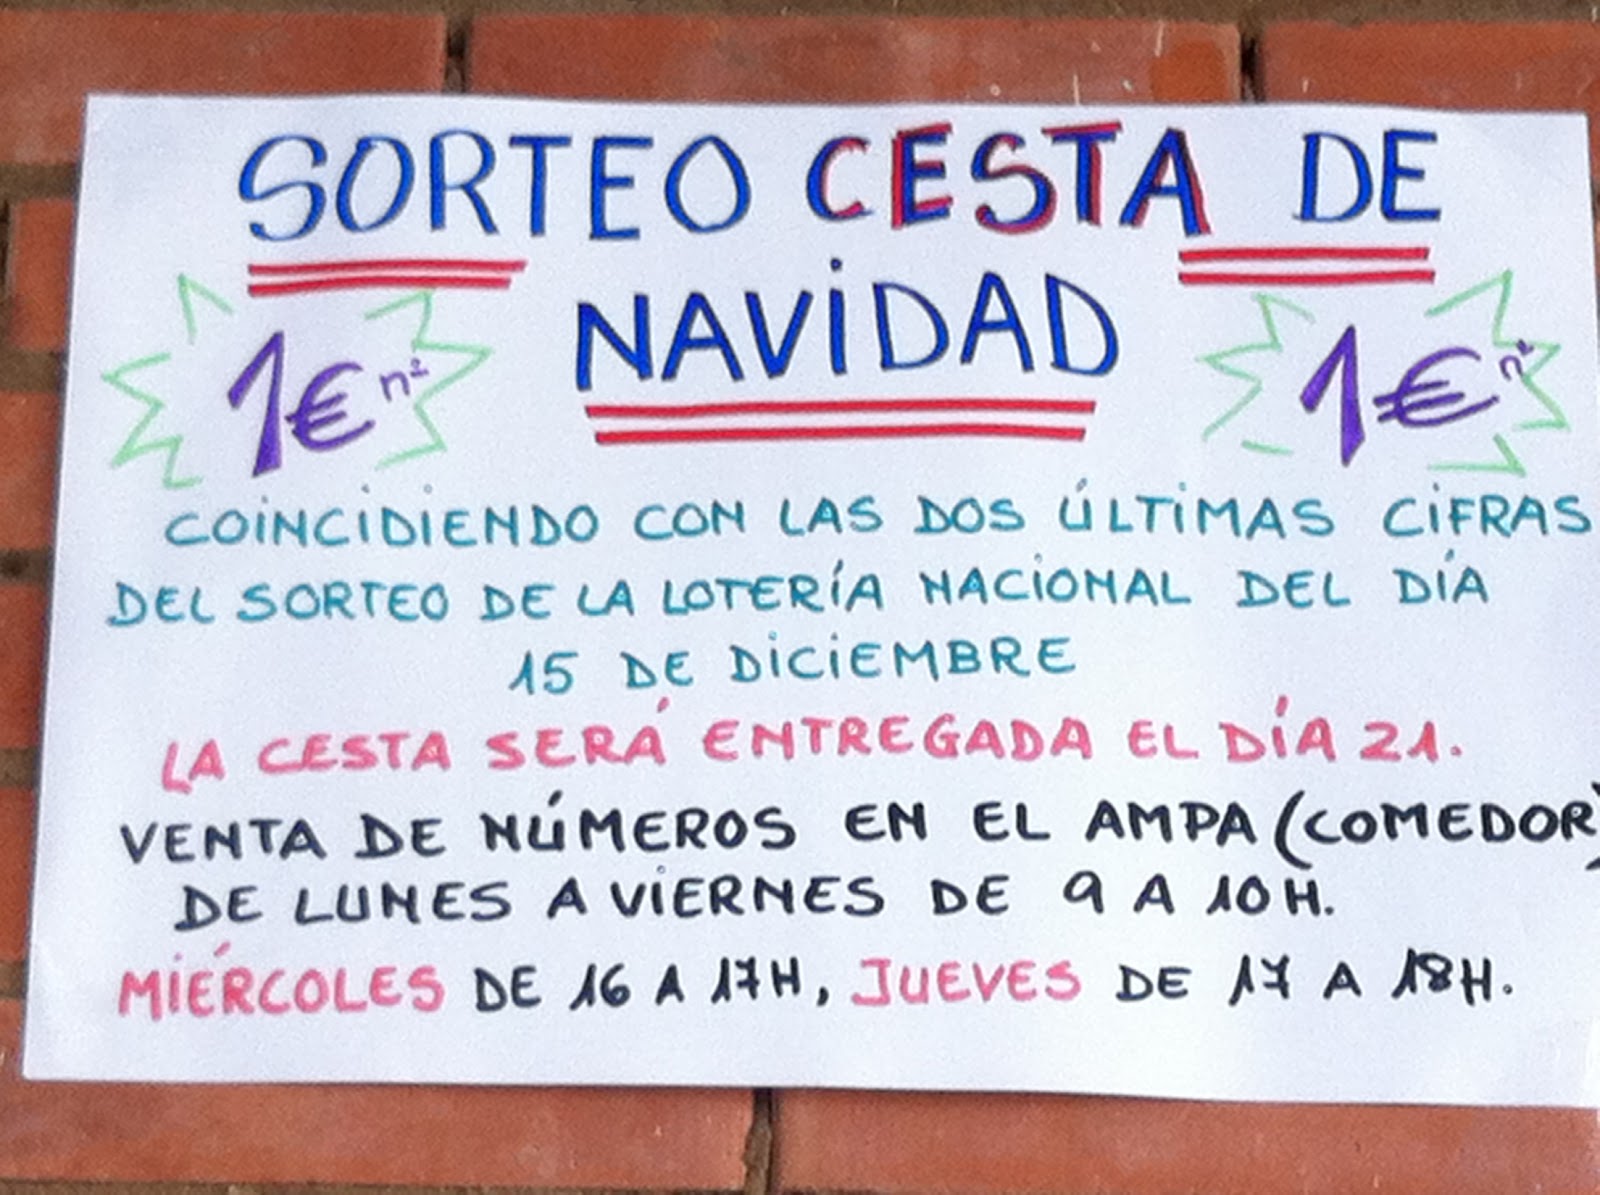 SORTEO CESTA DE
NAVIDAD
1€ nº
1€ nº
COINCIDIENDO CON LAS DOS ÚLTIMAS CIFRAS
DEL SORTEO DE LA LOTERÍA NACIONAL DEL DÍA
15 DE DICIEMBRE
LA CESTA SERÁ ENTREGADA EL DÍA 21.
VENTA DE NÚMEROS EN EL AMPA (COMEDOR)
DE LUNES A VIERNES DE 9 A 10H.
MIÉRCOLES DE 16 A 17H, JUEVES DE 17 A 18H.